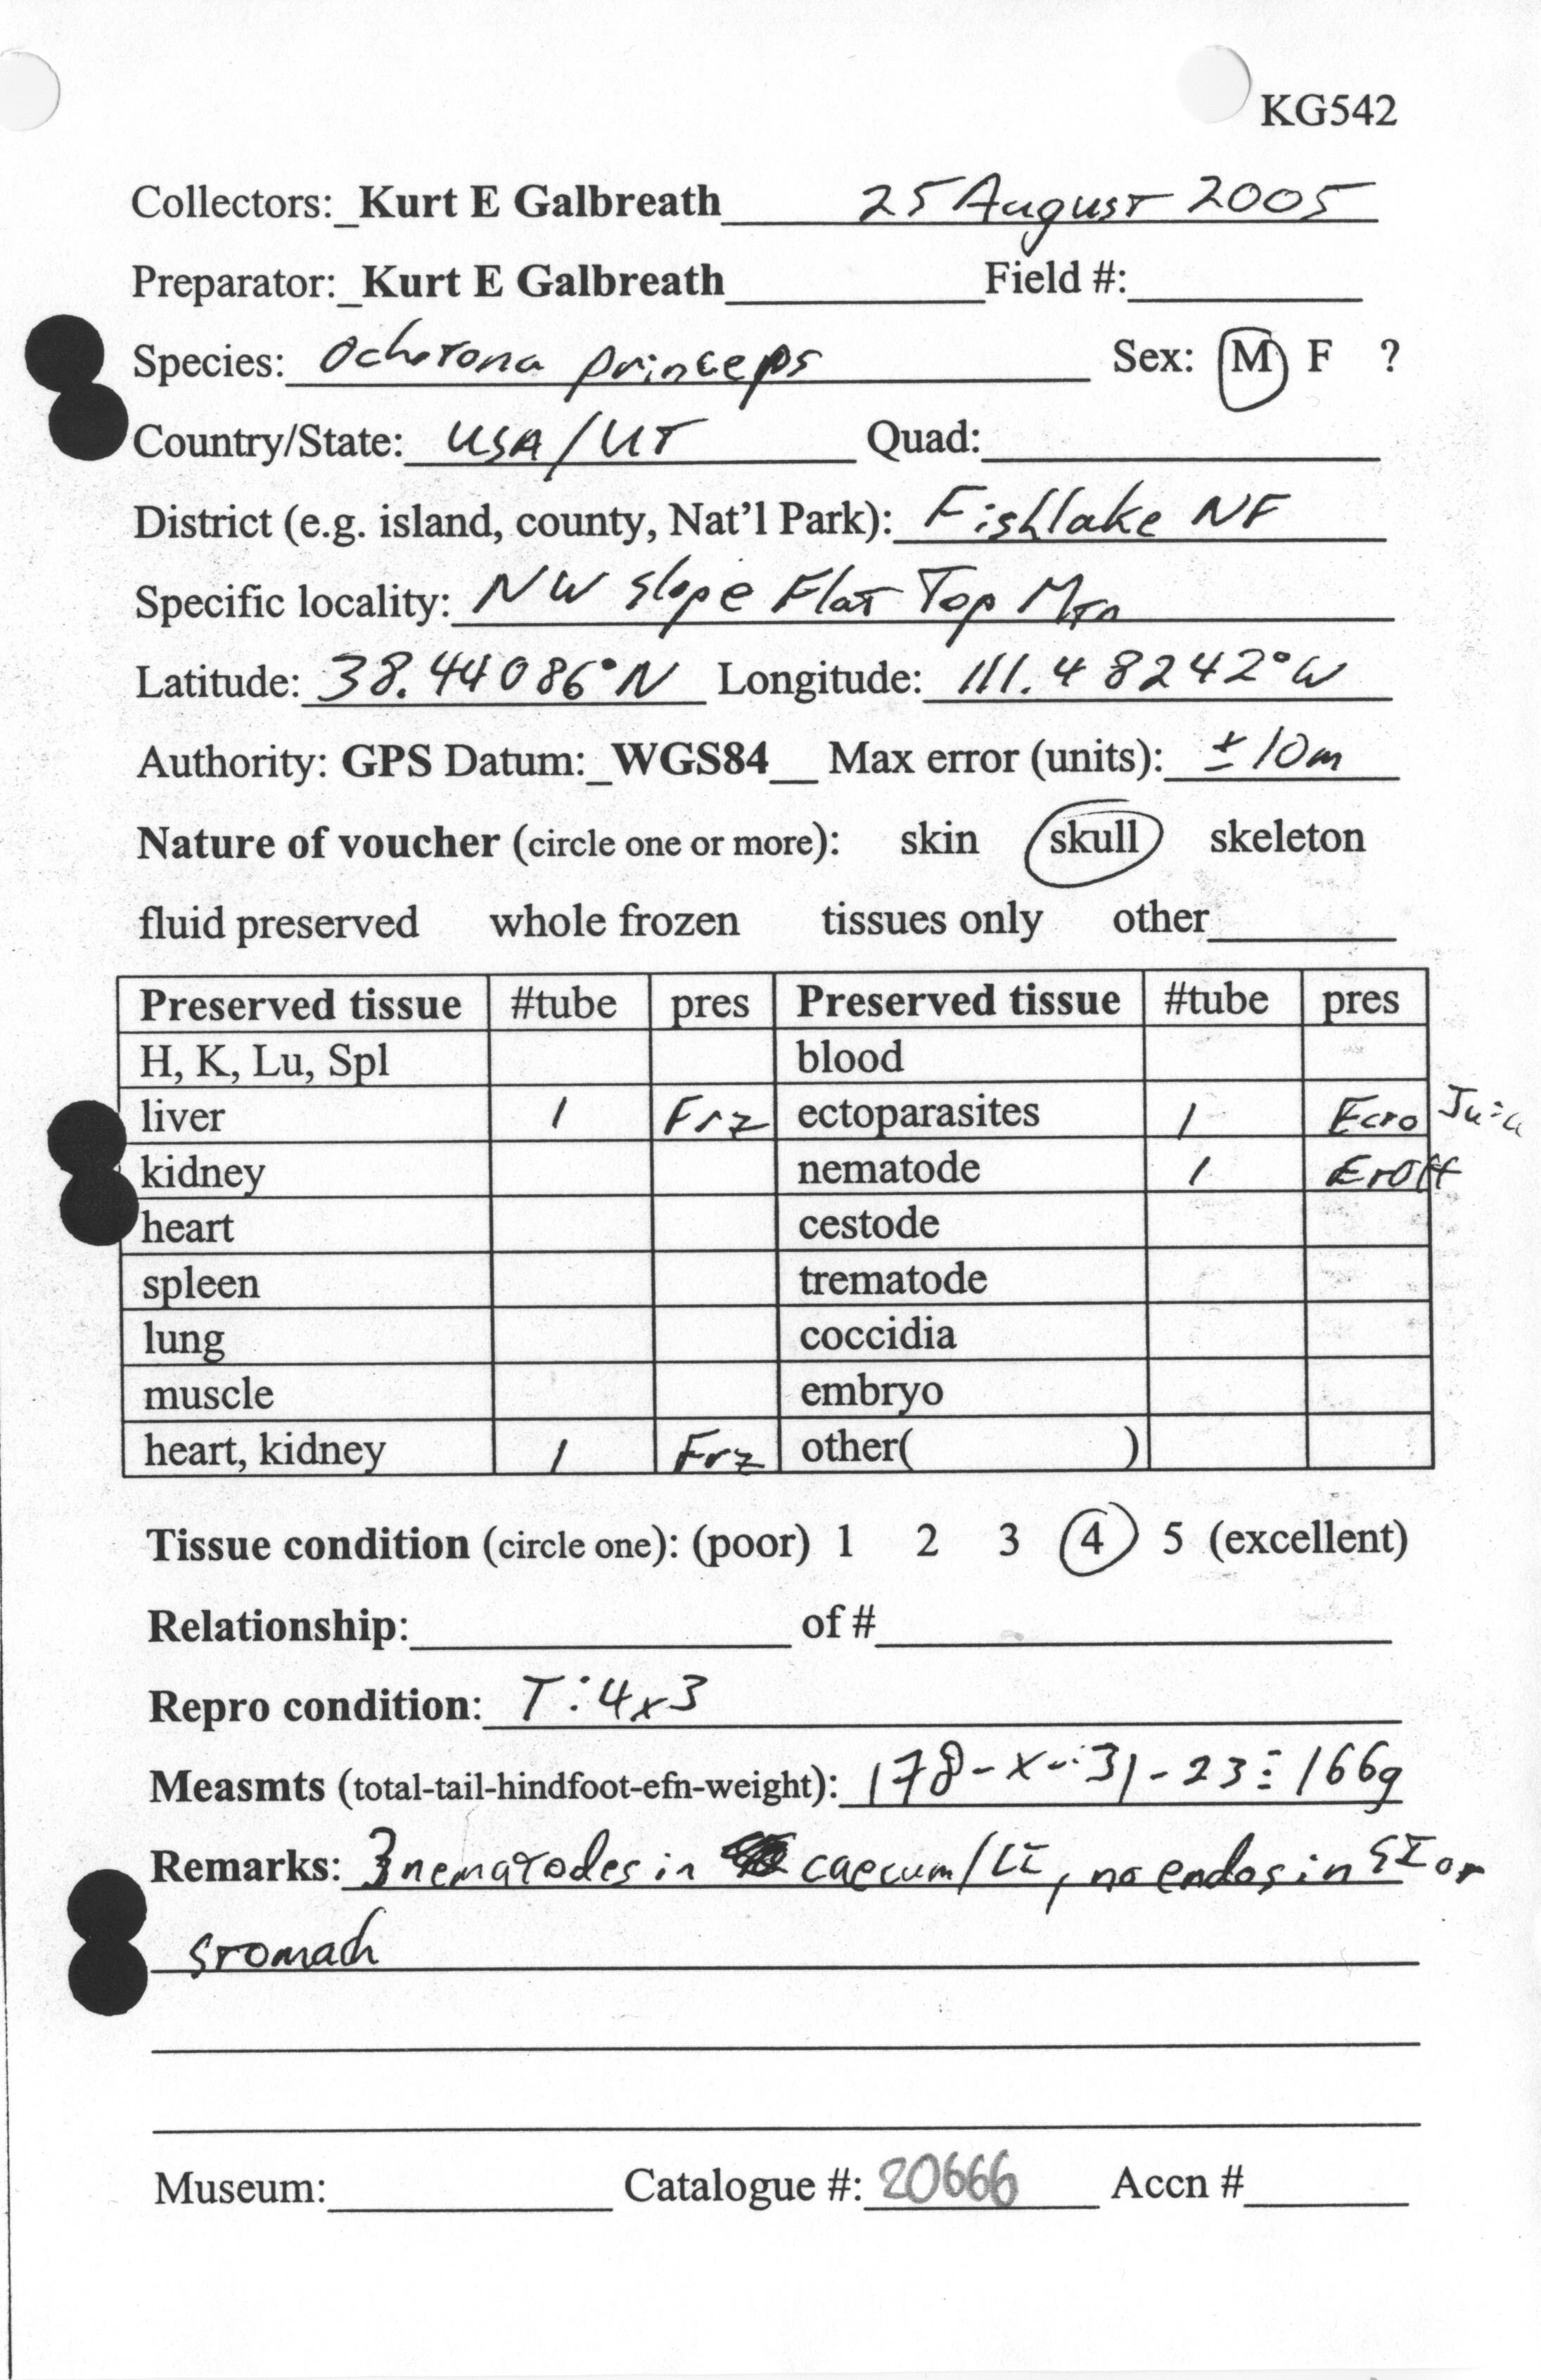 KG542
Collectors: Kurt E Galbreath 25 August 2005
Preparator: Kurt E Galbreath Field #:
Species: Ochotona princeps Sex: M F ?
Country/State: USA/UT Quad:
District (e.g. island, county, Nat'l Park): Fishlake NF
Specific locality: NW slope Flat Top Mtn
Latitude: 38.44086°N Longitude: 111.48242°W
Authority: GPS Datum: WGS84 Max error (units): ±10m
Nature of voucher (circle one or more): skin skull skeleton
fluid preserved whole frozen tissues only other
Preserved tissue #tube pres Preserved tissue #tube pres
H, K, Lu, Spl blood
liver 1 Frz ectoparasites 1 Ecto
kidney nematode 1
heart cestode
spleen trematode
lung coccidia
muscle embryo
heart, kidney 1 Frz other( )
Tissue condition (circle one): (poor) 1 2 3 4 5 (excellent)
Relationship: of #
Repro condition: T:4x3
Measmts (total-tail-hindfoot-efn-weight): 178-x-31-23≡166g
Remarks: 3 nematodes in caecum/LI, no endos in SI or
stomach
Museum: Catalogue #: 20666 Accn #